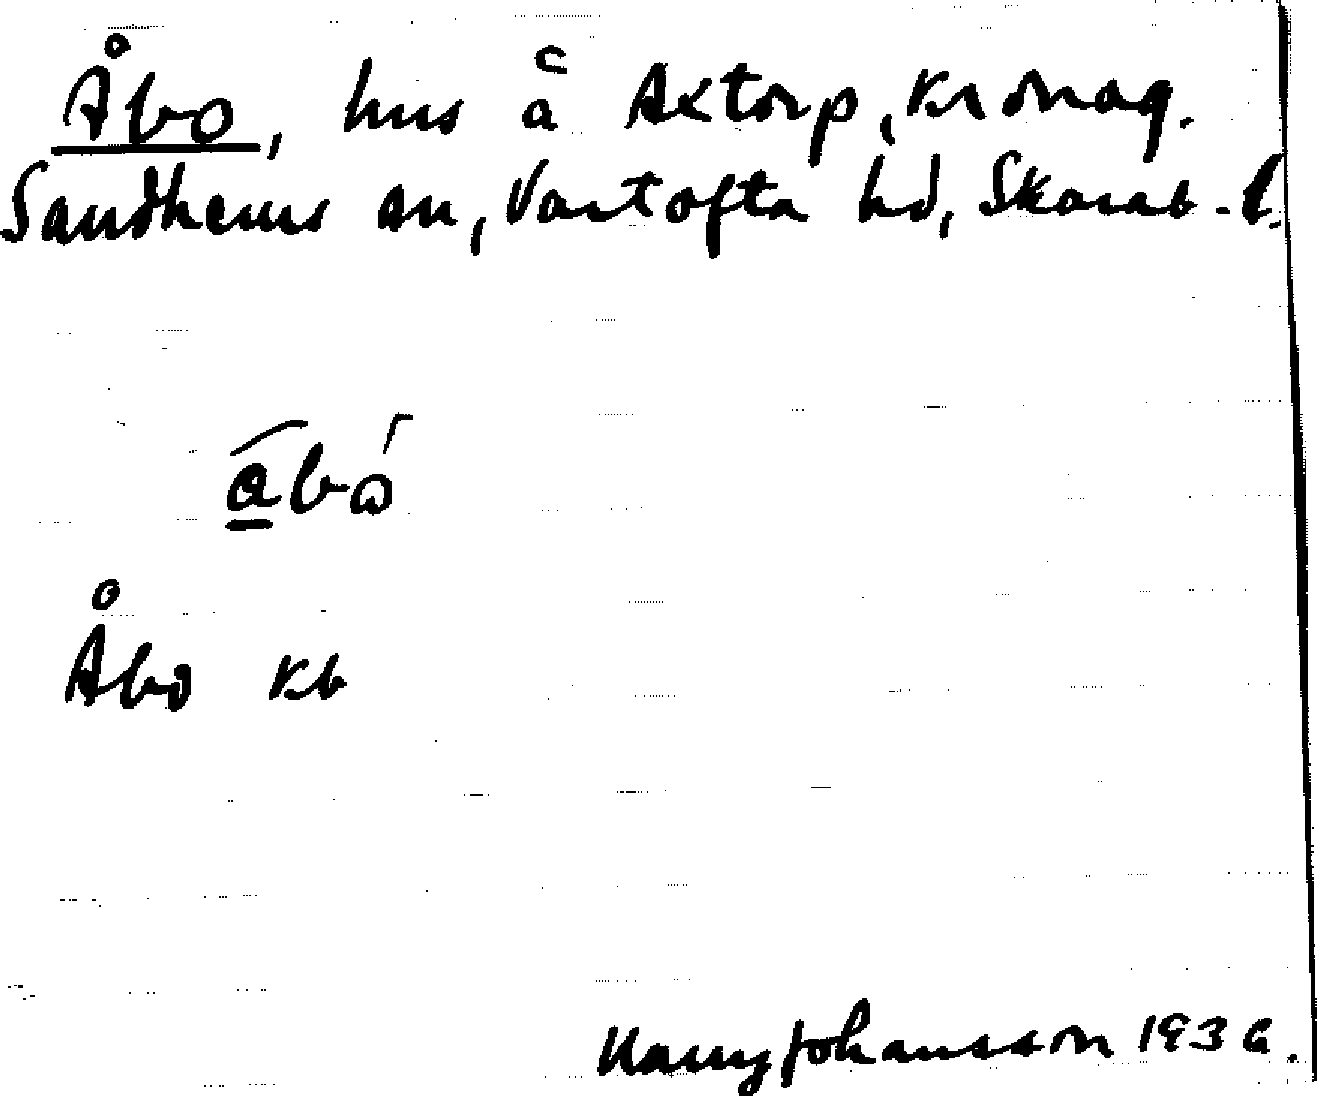 Åbo, hus å Axtorp, Kronog.
Sandhems sn, Vartofta hd, Skarab. l.
åbó
Åbo kb
Harry Johansson 1936.